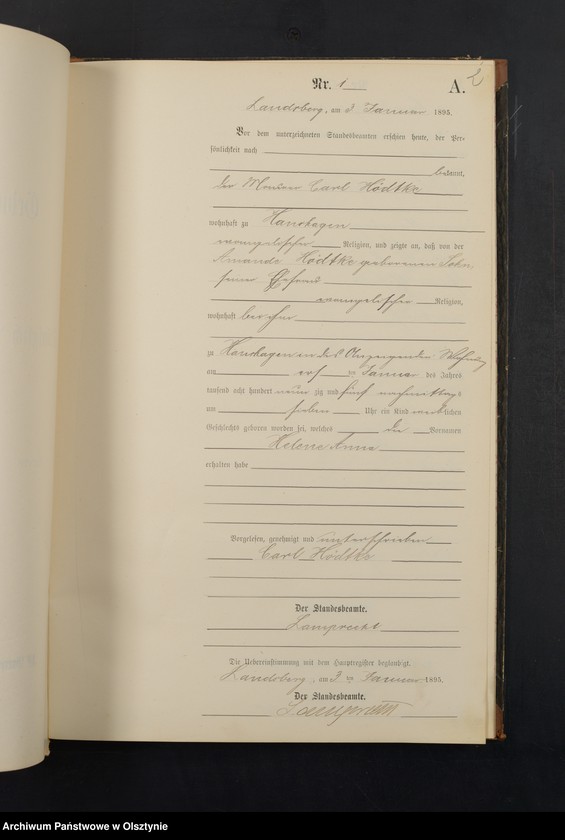 2
Nr. 1 A.
Landsberg, am 3. Januar 1895.
Vor dem unterzeichneten Standesbeamten erschien heute, der Per-
sönlichkeit nach
bekannt,
der Maurer Carl Hödtke
wohnhaft zu Hanshagen
evangelischer Religion, und zeigte an, daß von der
Amande Hödtke geborenen Sohn
seiner Ehefrau
evangelischer Religion,
wohnhaft bei ihm
zu Hanshagen in des Anzeigenden Wohnung
am ersten Januar des Jahres
tausend acht hundert neunzig und fünf nachmittags
um sieben Uhr ein Kind weiblichen
Geschlechts geboren worden sei, welches die Vornamen
Helene Anna
erhalten habe
Vorgelesen, genehmigt und unterschrieben
Carl Hödtke
Der Standesbeamte.
Lamprecht
Die Uebereinstimmung mit dem Hauptregister beglaubigt.
Landsberg, am 3ten Januar 1895.
Der Standesbeamte.
Lamprecht
Archiwum Państwowe w Olsztynie